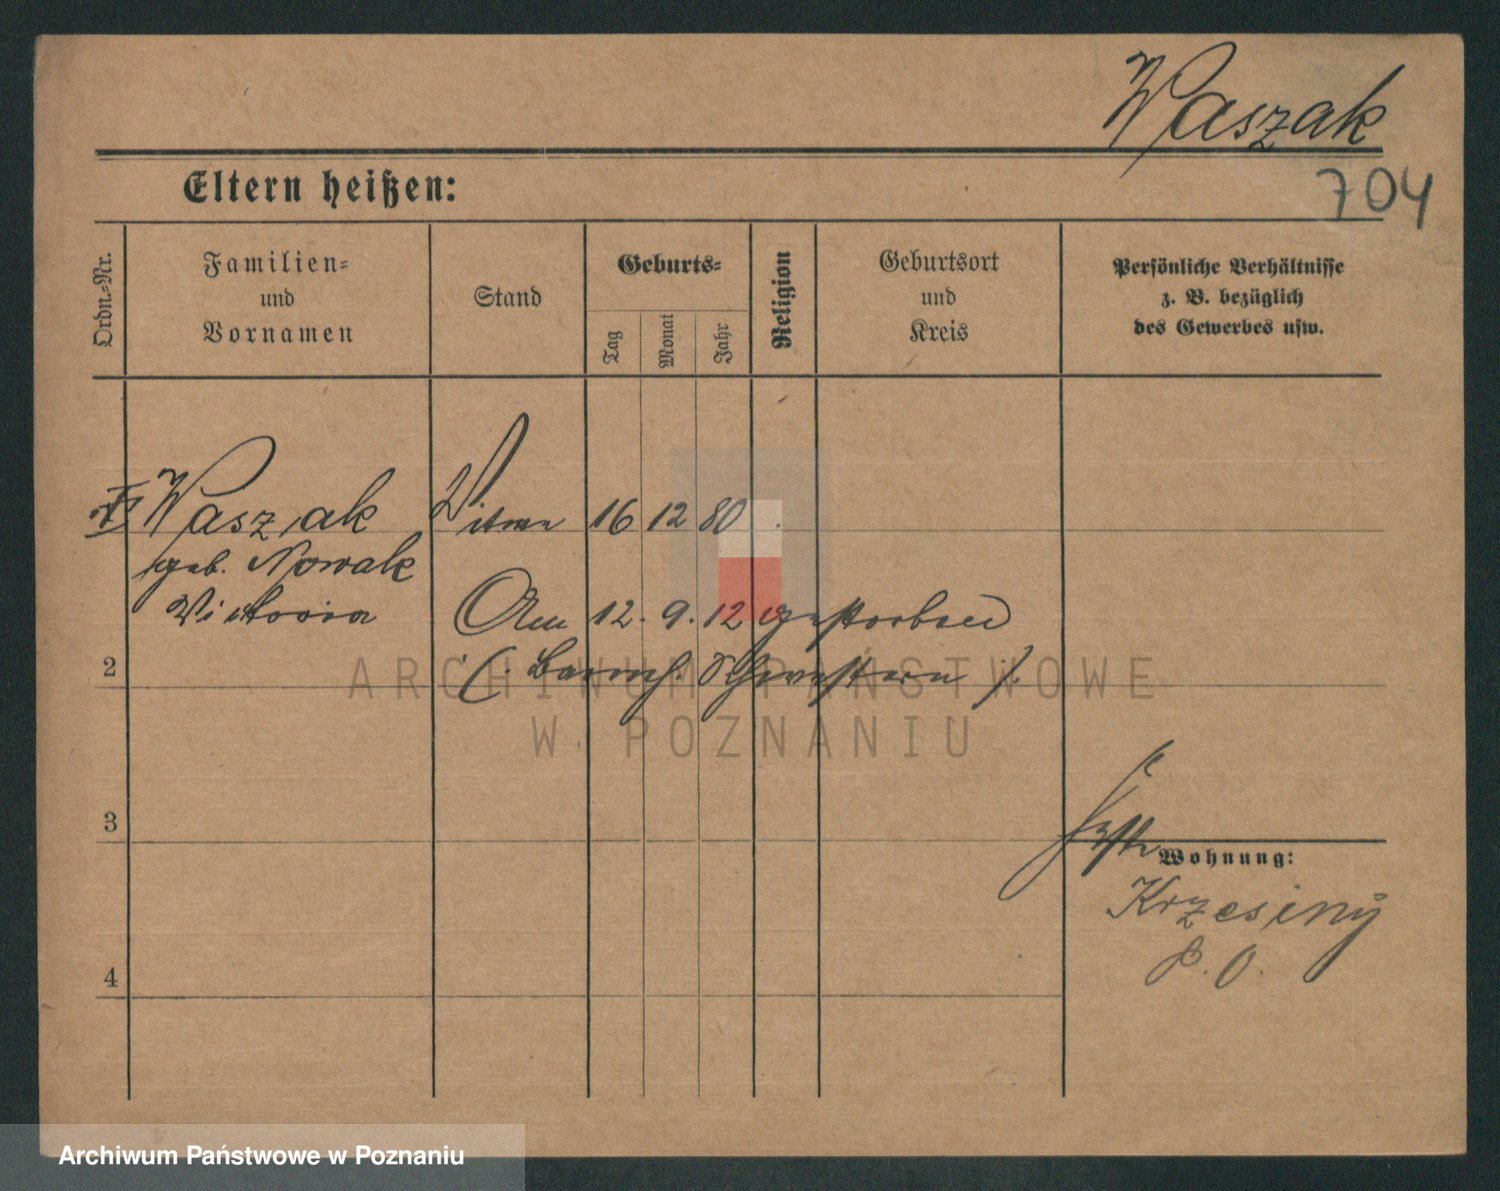 Waszak
Eltern heißen:
704
Ordn.-Nr.
Familien-
und
Vornamen
Stand
Geburts-
Tag
Monat
Jahr
Religion
Geburtsort
und
Kreis
Persönliche Verhältnisse
z. B. bezüglich
des Gewerbes usw.
Waszak
16 12 80
geb. Nowak
Victoria
Am 12. 9. 12 gestorben
(: Barmh. Schwestern :)
2
3
Wohnung:
Krzesiny
P. O.
4
ARCHIWUM PAŃSTWOWE
W POZNANIU
Archiwum Państwowe w Poznaniu